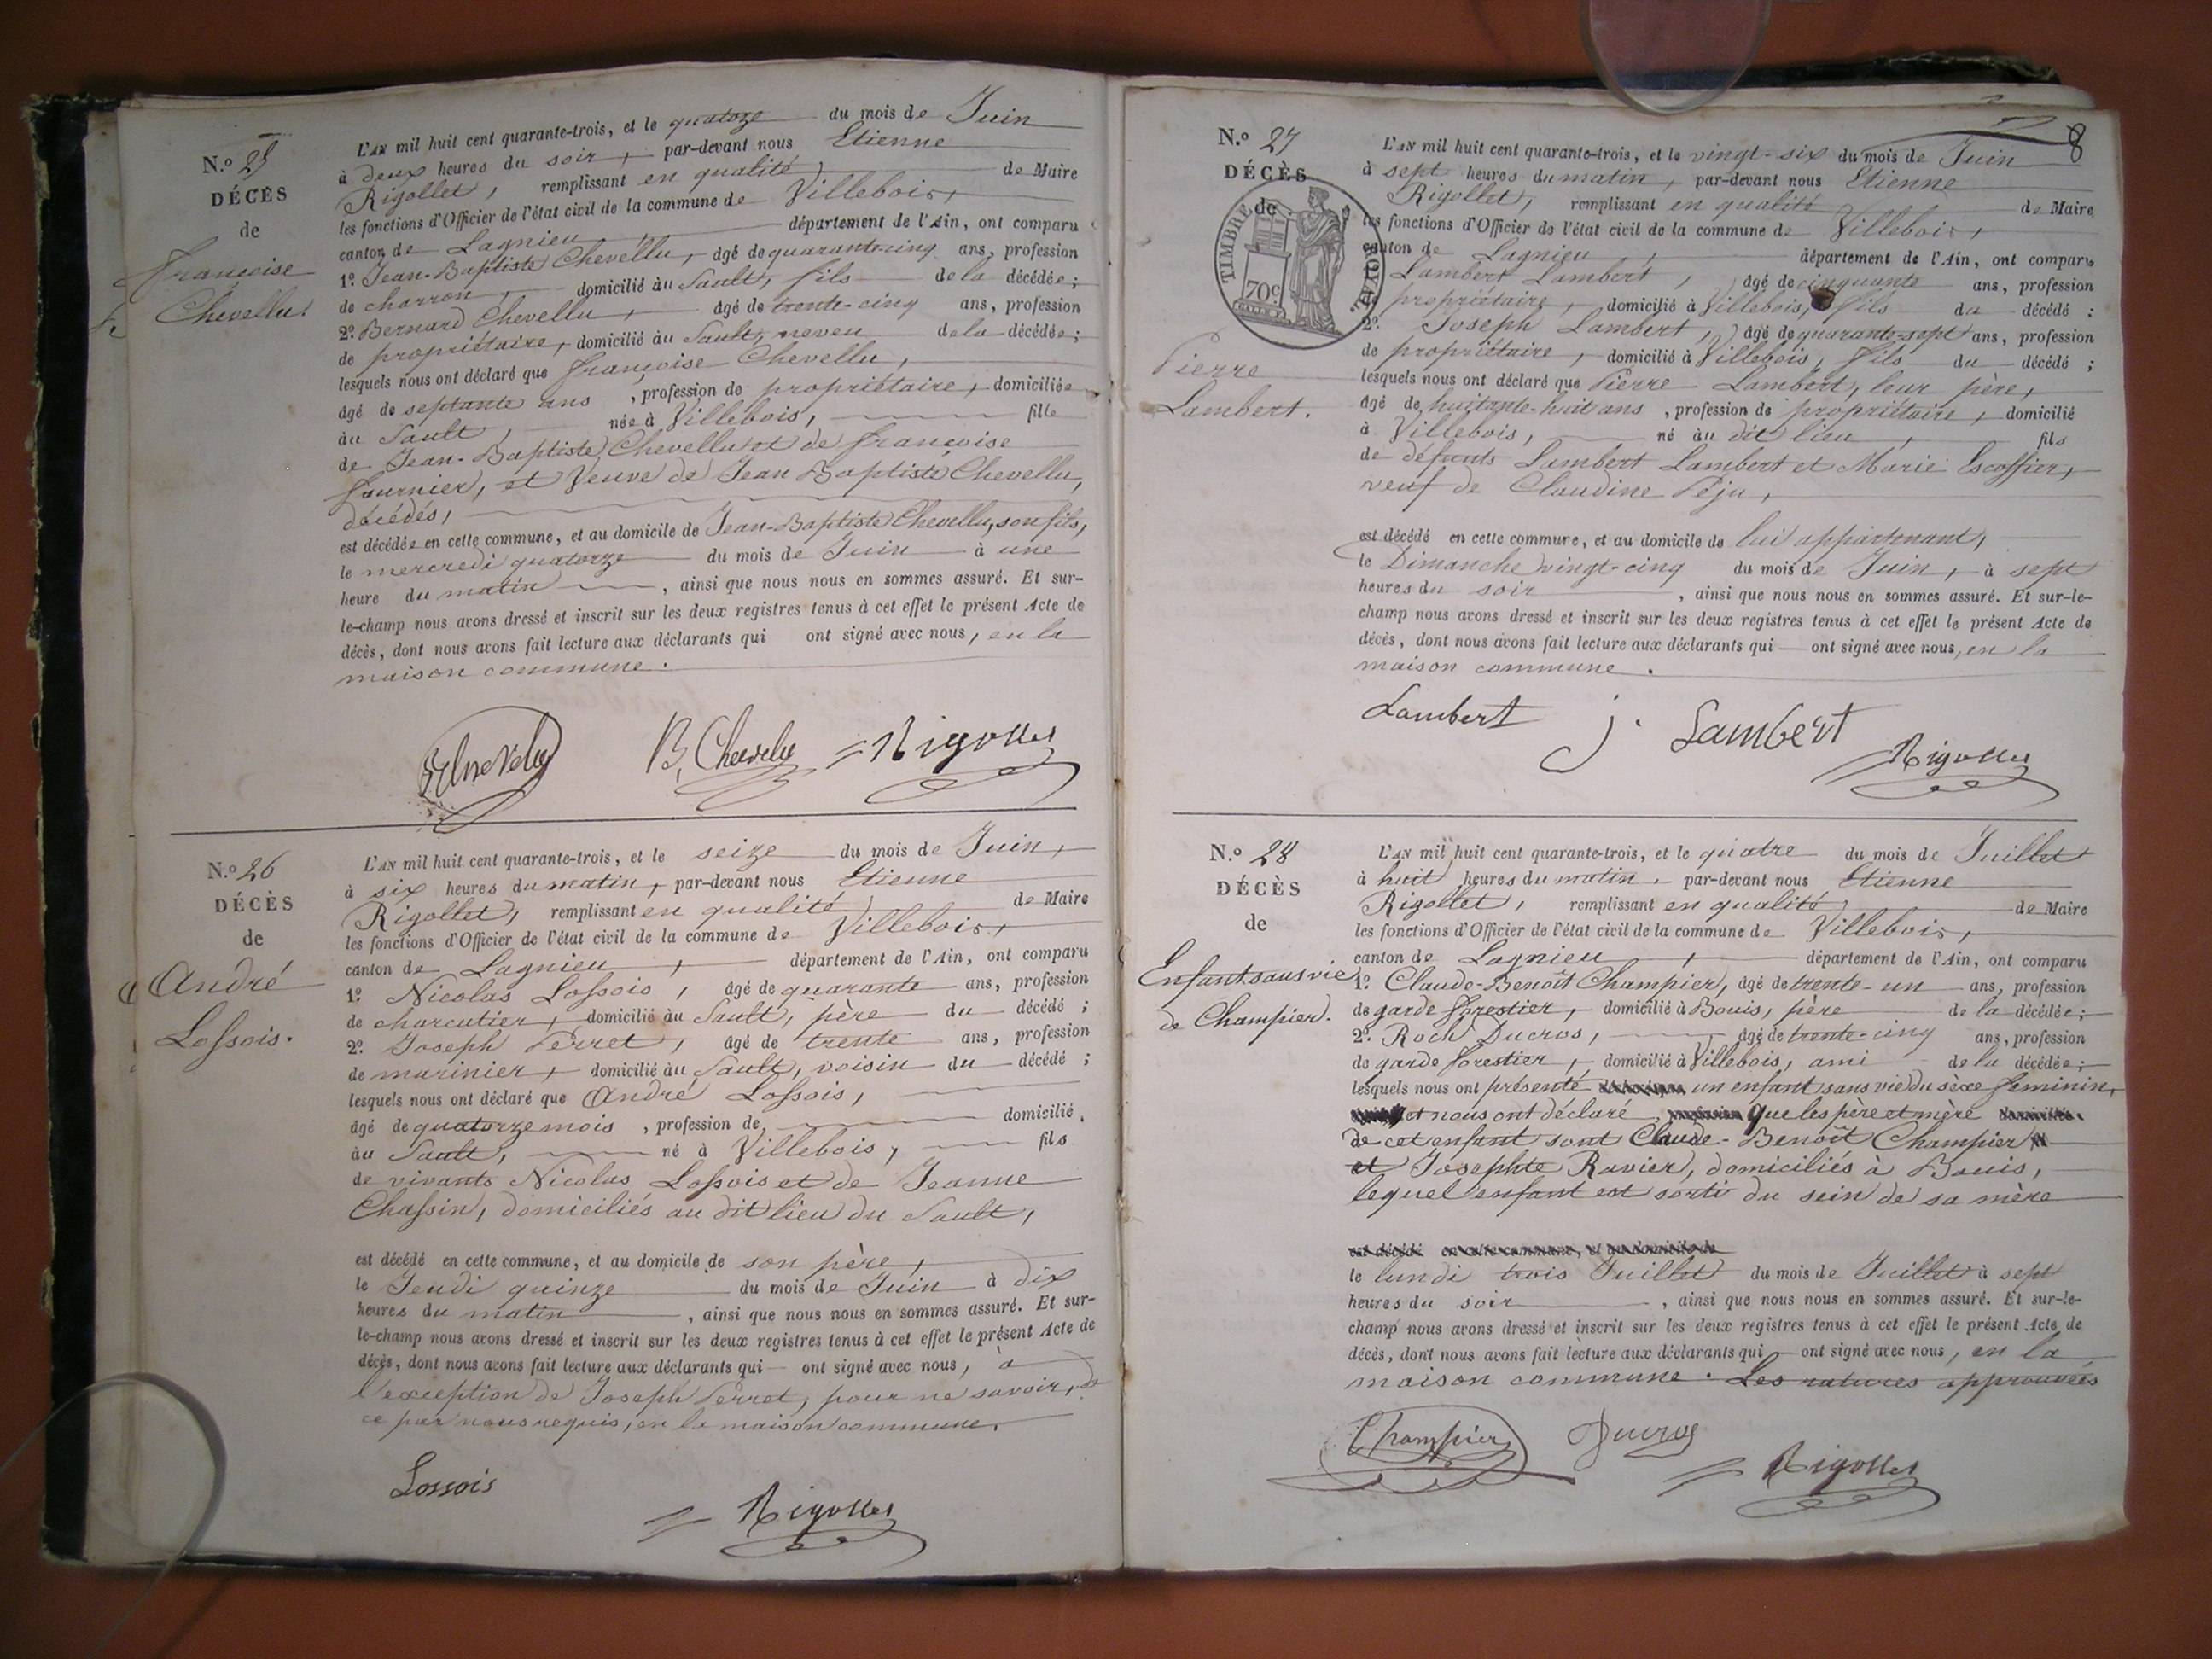 N.º 25
DÉCÈS
de
Françoise
Chevellu.
L'AN mil huit cent quarante-trois, et le quatoze du mois de Juin
à deux heures du soir, par-devant nous Etienne
Rigollet, remplissant en qualité de Maire
les fonctions d'Officier de l'état civil de la commune de Villebois,
canton de Lagnieu, département de l'Ain, ont comparu
1º. Jean-Baptiste Chevellu, âgé de quarante-cinq ans, profession
de charron, domicilié au Sault, fils de la décédée;
2º. Bernard Chevellu, âgé de trente-cinq ans, profession
de propriétaire, domicilié au Sault, neveu de la décédée;
lesquels nous ont déclaré que Françoise Chevellu,
âgé de septante ans, profession de propriétaire, domiciliée
au Sault, née à Villebois, fille
de Jean-Baptiste Chevellu et de Françoise
Fournier, et Veuve de Jean Baptiste Chevellu,
décédés,
est décédée en cette commune, et au domicile de Jean-Baptiste Chevellu, son fils,
le mercredi quatorze du mois de Juin à une
heure du matin, ainsi que nous nous en sommes assuré. Et sur-
le-champ nous avons dressé et inscrit sur les deux registres tenus à cet effet le présent Acte de
décès, dont nous avons fait lecture aux déclarants qui ont signé avec nous, en la
maison commune.
B. Chevelu Rigollet
N.º 26
DÉCÈS
de
André
Lossois.
L'AN mil huit cent quarante-trois, et le seize du mois de Juin,
à six heures du matin, par-devant nous Etienne
Rigollet, remplissant en qualité de Maire
les fonctions d'Officier de l'état civil de la commune de Villebois,
canton de Lagnieu, département de l'Ain, ont comparu
1º. Nicolas Lossois, âgé de quarante ans, profession
de charcutier, domicilié au Sault, père du décédé;
2º. Joseph Perret, âgé de trente ans, profession
de marinier, domicilié au Sault, voisin du décédé;
lesquels nous ont déclaré que André Lossois,
âgé de quatorze mois, profession de domicilié
au Sault, né à Villebois, fils
de vivants Nicolas Lossois et de Jeanne
Chassin, domiciliés au dit lieu du Sault,
est décédé en cette commune, et au domicile de son père,
le Jeudi quinze du mois de Juin à dix
heures du matin, ainsi que nous nous en sommes assuré. Et sur-
le-champ nous avons dressé et inscrit sur les deux registres tenus à cet effet le présent Acte de
décès, dont nous avons fait lecture aux déclarants qui ont signé avec nous, à
l'exception de Joseph Perret, pour ne savoir, de
ce par nous requis, en la maison commune.
Lossois
Rigollet
8
N.º 27
DÉCÈS
de
TIMBRE ROYAL
70c
Pierre
Lambert.
L'AN mil huit cent quarante-trois, et le vingt-six du mois de Juin
à sept heures du matin, par-devant nous Etienne
Rigollet, remplissant en qualité de Maire
les fonctions d'Officier de l'état civil de la commune de Villebois,
canton de Lagnieu, département de l'Ain, ont comparu
Lambert Lambert, âgé de cinquante ans, profession
de propriétaire, domicilié à Villebois, fils du décédé:
2º. Joseph Lambert, âgé de quarante-sept ans, profession
de propriétaire, domicilié à Villebois, fils du décédé;
lesquels nous ont déclaré que Pierre Lambert, leur père,
âgé de huitante-huit ans, profession de propriétaire, domicilié
à Villebois, né au dit lieu, fils
de défunts Lambert Lambert et Marie Escoffier,
veuf de Claudine Péju,
est décédé en cette commure, et au domicile de lui appartenant,
le Dimanche vingt-cinq du mois de Juin, à sept
heures du soir, ainsi que nous nous en sommes assuré. Et sur-le-
champ nous avons dressé et inscrit sur les deux registres tenus à cet effet le présent Acte de
décès, dont nous avons fait lecture aux déclarants qui ont signé avec nous, en la
maison commune.
Lambert J. Lambert
Rigollet
N.º 28
DÉCÈS
de
Enfant sans vie
de Champier.
L'AN mil huit cent quarante-trois, et le quatre du mois de Juillet
à huit heures du matin, par-devant nous Etienne
Rigollet, remplissant en qualité de Maire
les fonctions d'Officier de l'état civil de la commune de Villebois,
canton de Lagnieu, département de l'Ain, ont comparu
1º. Claude-Benoît Champier, âgé de trente-un ans, profession
de garde forestier, domicilié à Bouis, père de la décédée;
2º. Roch Ducros, âgé de trente-cinq ans, profession
de garde forestier, domicilié à Villebois, ami de la décédée;
lesquels nous ont présenté un enfant sans vie du sèxe feminin,
et nous ont déclaré que les père et mère
de cet enfant sont Claude-Benoît Champier
et Josephte Ravier, domiciliés à Bouis,
lequel enfant est sorti du sein de sa mère
est décédé en cette commune, et au domicile de
le lundi trois Juillet du mois de Juillet à sept
heures du soir, ainsi que nous nous en sommes assuré. Et sur-le-
champ nous avons dressé et inscrit sur les deux registres tenus à cet effet le présent Acte de
décès, dont nous avons fait lecture aux déclarants qui ont signé avec nous, en la
maison commune. Les ratures approuvées
Champier Ducros
Rigollet